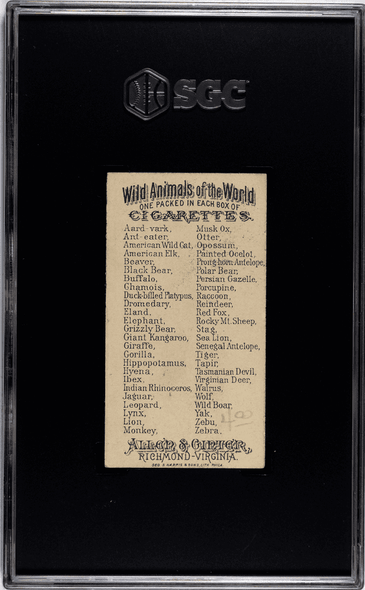 SGC
Wild Animals of the World
ONE PACKED IN EACH BOX OF
CIGARETTES.
Aard vark, Musk Ox,
Ant eater, Otter,
American Wild Cat, Opossum,
American Elk, Painted Ocelot,
Beaver, Prong-horn Antelope,
Black Bear, Polar Bear,
Buffalo, Persian Gazelle,
Chamois, Porcupine,
Duck-billed Platypus, Raccoon,
Dromedary, Reindeer,
Eland, Red Fox,
Elephant, Rocky Mt. Sheep,
Grizzly Bear, Stag,
Giant Kangaroo, Sea Lion,
Giraffe, Senegal Antelope,
Gorilla, Tiger,
Hippopotamus, Tapir,
Hyena, Tasmanian Devil,
Ibex, Virginian Deer,
Indian Rhinoceros, Walrus,
Jaguar, Wolf,
Leopard, Wild Boar,
Lynx, Yak,
Lion, Zebu,
Monkey, Zebra,
ALLEN & GINTER,
RICHMOND-VIRGINIA.
GEO. S. HARRIS & SONS, LITH. PHILA.